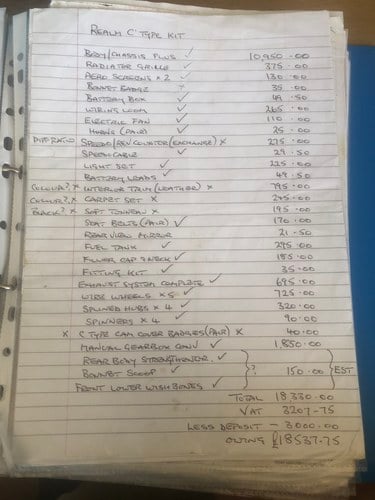 REALM 'C' TYPE KIT
BODY/CHASSIS PLUS ✓ 10,950.00
RADIATOR GRILLE ✓ 375.00
AERO SCREENS x 2 ✓ 130.00
BONNET BADGE ? 35.00
BATTERY BOX ✓ 49.50
WIRING LOOM ✓ 265.00
ELECTRIC FAN ✓ 110.00
HORNS (PAIR) ✓ 25.00
DIFF RATIO SPEEDO/REV COUNTER (EXCHANGE) X 275.00
SPEEDO CABLE ✓ 29.50
LIGHT SET ✓ 225.00
BATTERY LEADS ✓ 49.50
COLOUR? X INTERIOR TRIM (LEATHER) X 795.00
COLOUR? X CARPET SET X 245.00
BLACK? X SOFT TONNEAU X 195.00
SEAT BELTS (PAIR) ✓ 170.00
REAR VIEW MIRROR 21.50
FUEL TANK ✓ 295.00
FILLER CAP & NECK ✓ 185.00
FITTING KIT ✓ 35.00
EXHAUST SYSTEM COMPLETE ✓ 695.00
WIRE WHEELS x 5 ✓ 725.00
SPLINED HUBS x 4 ✓ 320.00
SPINNERS x 4 ✓ 90.00
X C TYPE CAM COVER BADGES (PAIR) X 40.00
MANUAL GEARBOX CONV ✓ 1,850.00
REAR BODY STRENGTHENER ✓
BONNET SCOOP ✓ ? 150.00 EST
FRONT LOWER WISHBONES ✓
TOTAL 18,330.00
VAT 3207-75
LESS DEPOSIT - 3000.00
OWING £18537-75